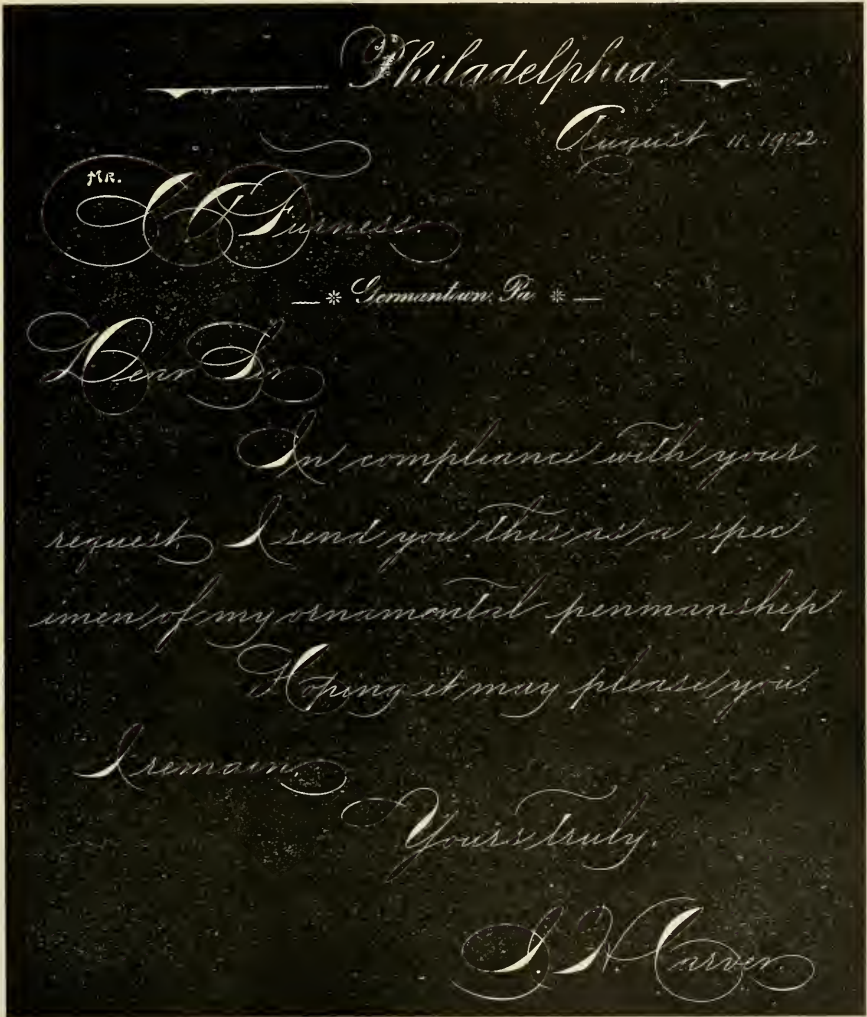 Philadelphia.
August 11. 1902.
MR.
Furness
Germantown, Pa
Dear Sir
In compliance with your
request. I send you this as a spec
imen of my ornamental penmanship
Hoping it may please you.
I remain.
Yours Truly.
H. Carver.